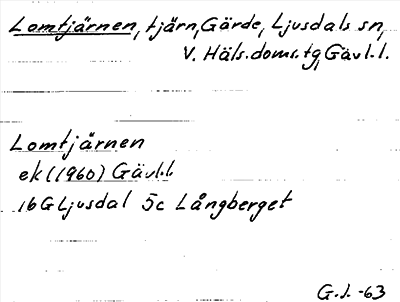 Lomtjärnen, tjärn, Gärde, Ljusdals sn,
V. Häls. doms. tg, Gävl. l.
Lomtjärnen
ek (1960) Gävl.l.
16G Ljusdal 5c Långberget
G.J. -63